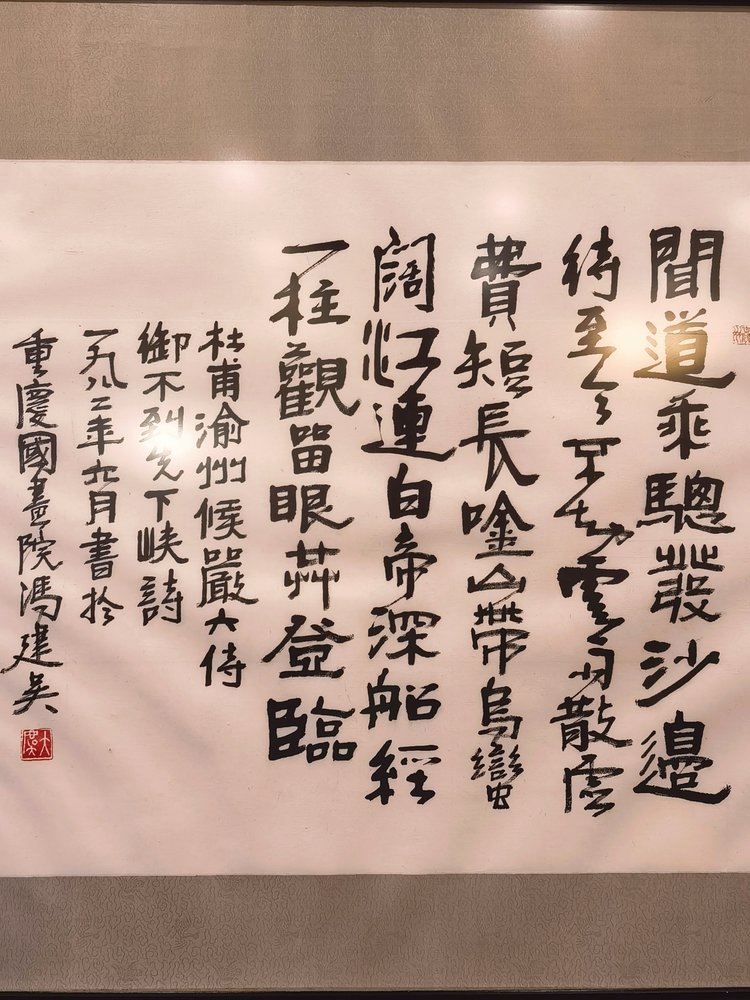 聞道乘驄發沙邊
待至今不知雲雨散虛
費短長唫山帶烏蠻
闊江連白帝深船經
一柱觀留眼共登臨
杜甫渝州候嚴六侍
御不到先下峽詩
一九八二年九月書於
重慶國畫院馮建吳